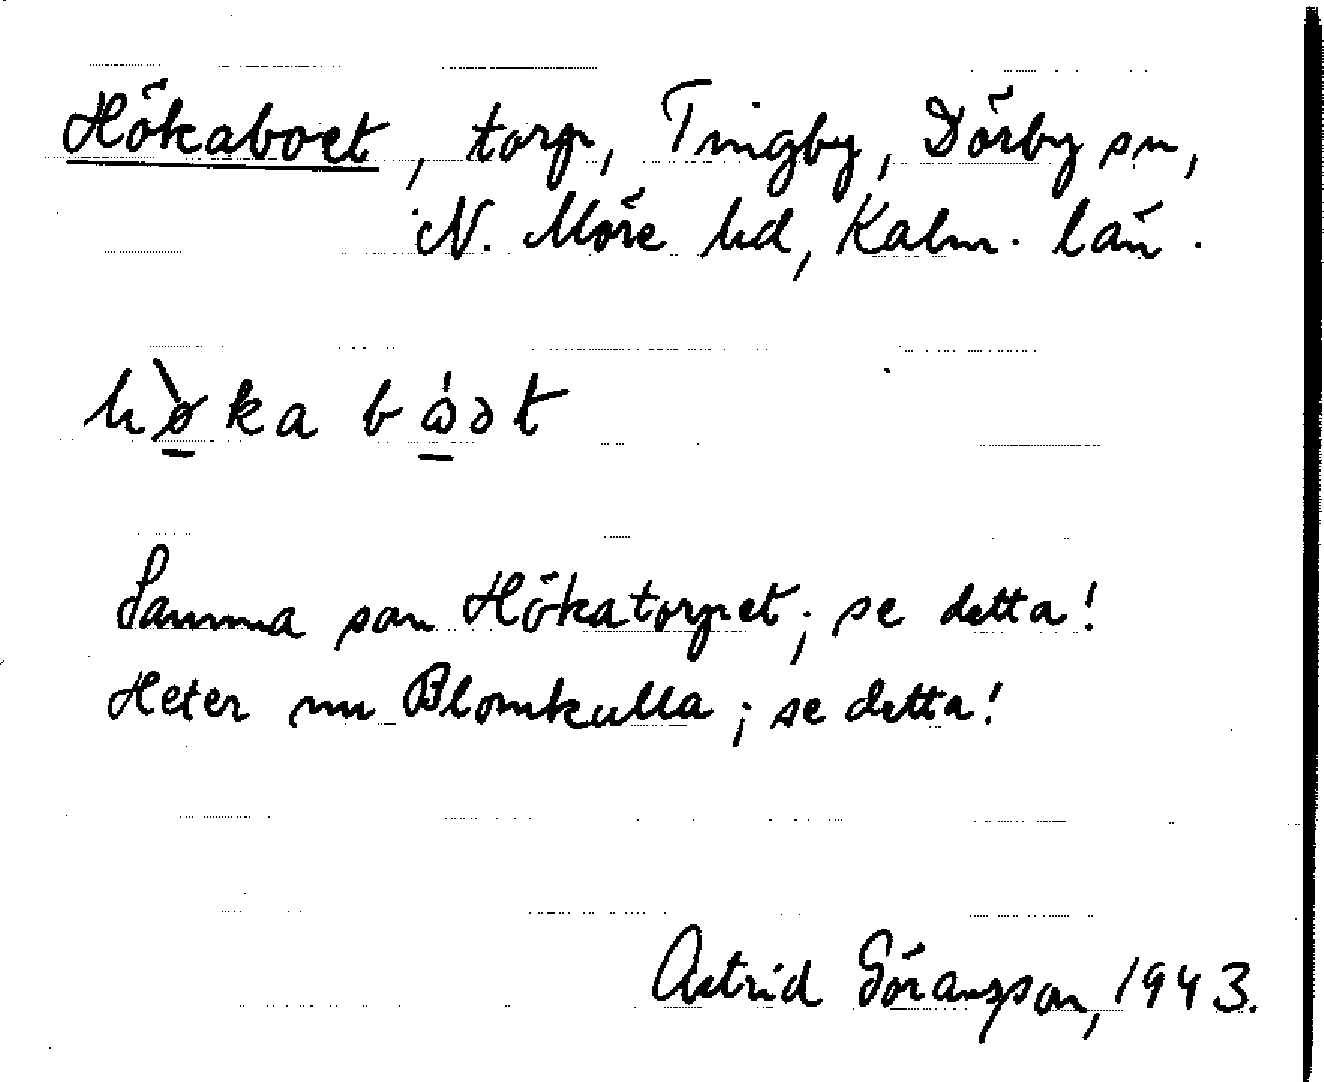 Hökaboet, torp, Tingby, Dörby sn,
N. Möre hd, Kalm. län.
hø̀ka bωət
Samma som Hökatorpet; se detta!
Heter nu Blomkulla; se detta!
Astrid Göranzson, 1943.